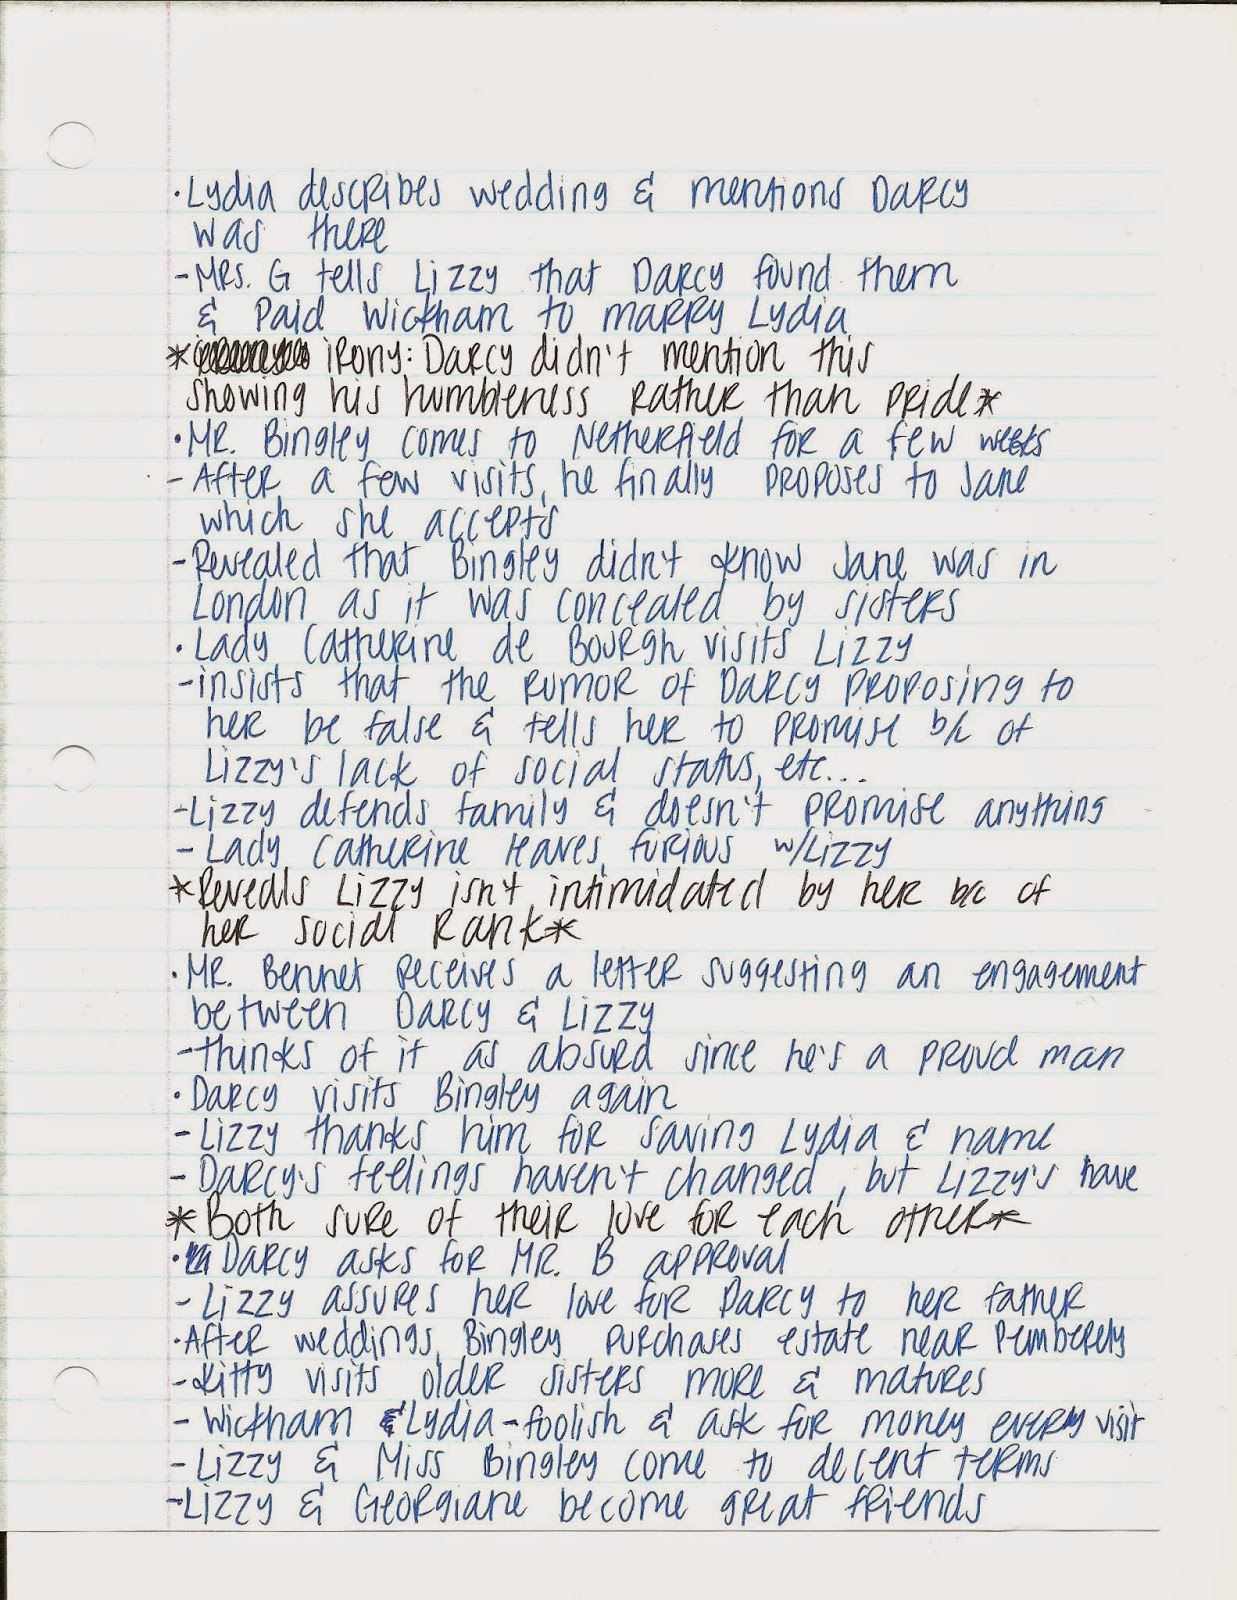 ·Lydia describes wedding & mentions Darcy
was there
-Mrs. G tells Lizzy that Darcy found them
& Paid Wickham to marry Lydia
* irony: Darcy didn't mention this
showing his humbleness rather than pride*
·Mr. Bingley comes to Netherfield for a few weeks
- After a few visits, he finally proposes to Jane
which she accepts
-Revealed that Bingley didn't know Jane was in
London as it was concealed by sisters
·Lady Catherine de Bourgh visits Lizzy
-insists that the rumor of Darcy proposing to
her be false & tells her to promise b/c of
Lizzy's lack of social status, etc...
-Lizzy defends family & doesn't promise anything
- Lady Catherine leaves furious w/Lizzy
*Reveals Lizzy isn't intimidated by her b/c of
her social rank*
·Mr. Bennet receives a letter suggesting an engagement
between Darcy & Lizzy
-thinks of it as absurd since he's a proud man
·Darcy visits Bingley again
- Lizzy thanks him for saving Lydia & name
- Darcy's feelings haven't changed, but Lizzy's have
*Both sure of their love for each other*
· Darcy asks for Mr. B approval
- Lizzy assures her love for Darcy to her father
·After weddings, Bingley purchases estate near Pemberely
-Kitty visits older sisters more & matures
- Wickham & Lydia-foolish & ask for money every visit
- Lizzy & Miss Bingley come to decent terms
-Lizzy & Georgiane become great friends